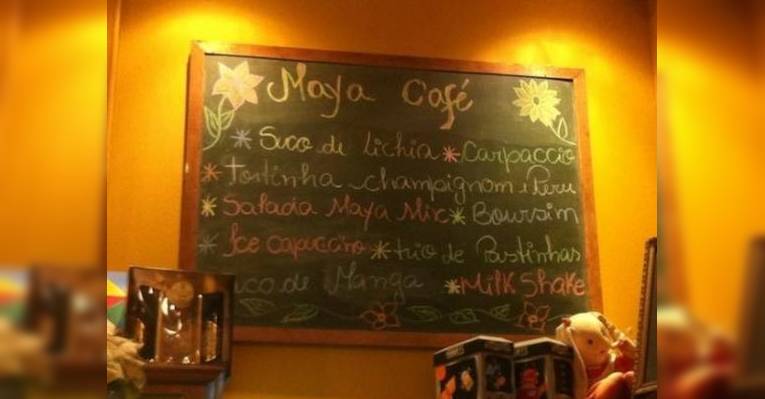 Maya Café
* Suco de Lichia * Carpaccio
* Tortinha champignom e Peru
* Salada Maya Mix * Boursim
* Ice Capuccino * trio de Pastinhas
uco de Manga * Milk Shake